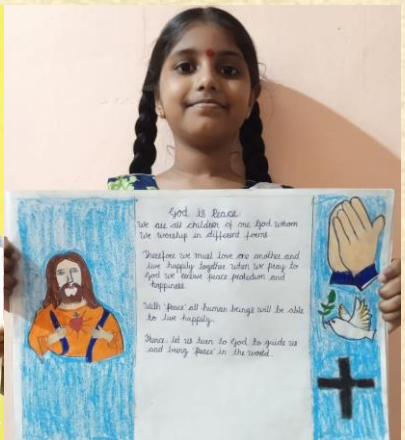 God is Peace
We are all children of one God whom
We worship in different forms
Therefore we must love one another and
live happily together when we pray to
God we receive peace protection and
happiness.
With 'peace' all human beings will be able
to live happily.
Hence let us turn to God to guide us
and bring 'peace' in the world.